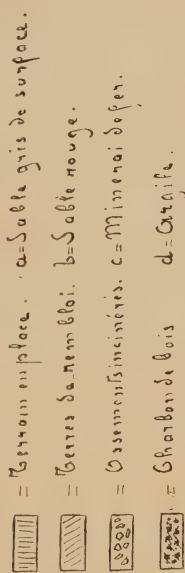 = Terrain en place. a=Sable gris de surface.
= Terres de remblai. b=Sable rouge.
= Ossements incinérés. c=Minerai de fer.
= Charbon de bois d=Argile.